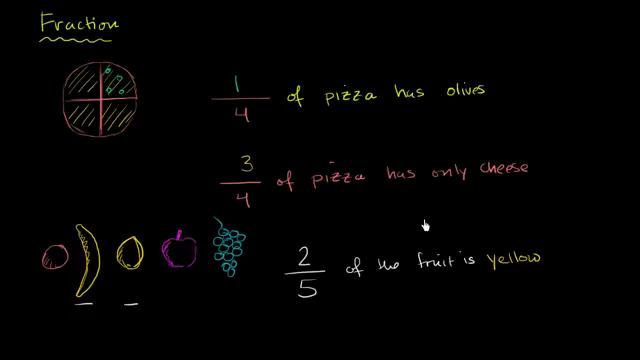 Fraction
1/4 of pizza has olives
3/4 of pizza has only cheese
2/5 of the fruit is yellow